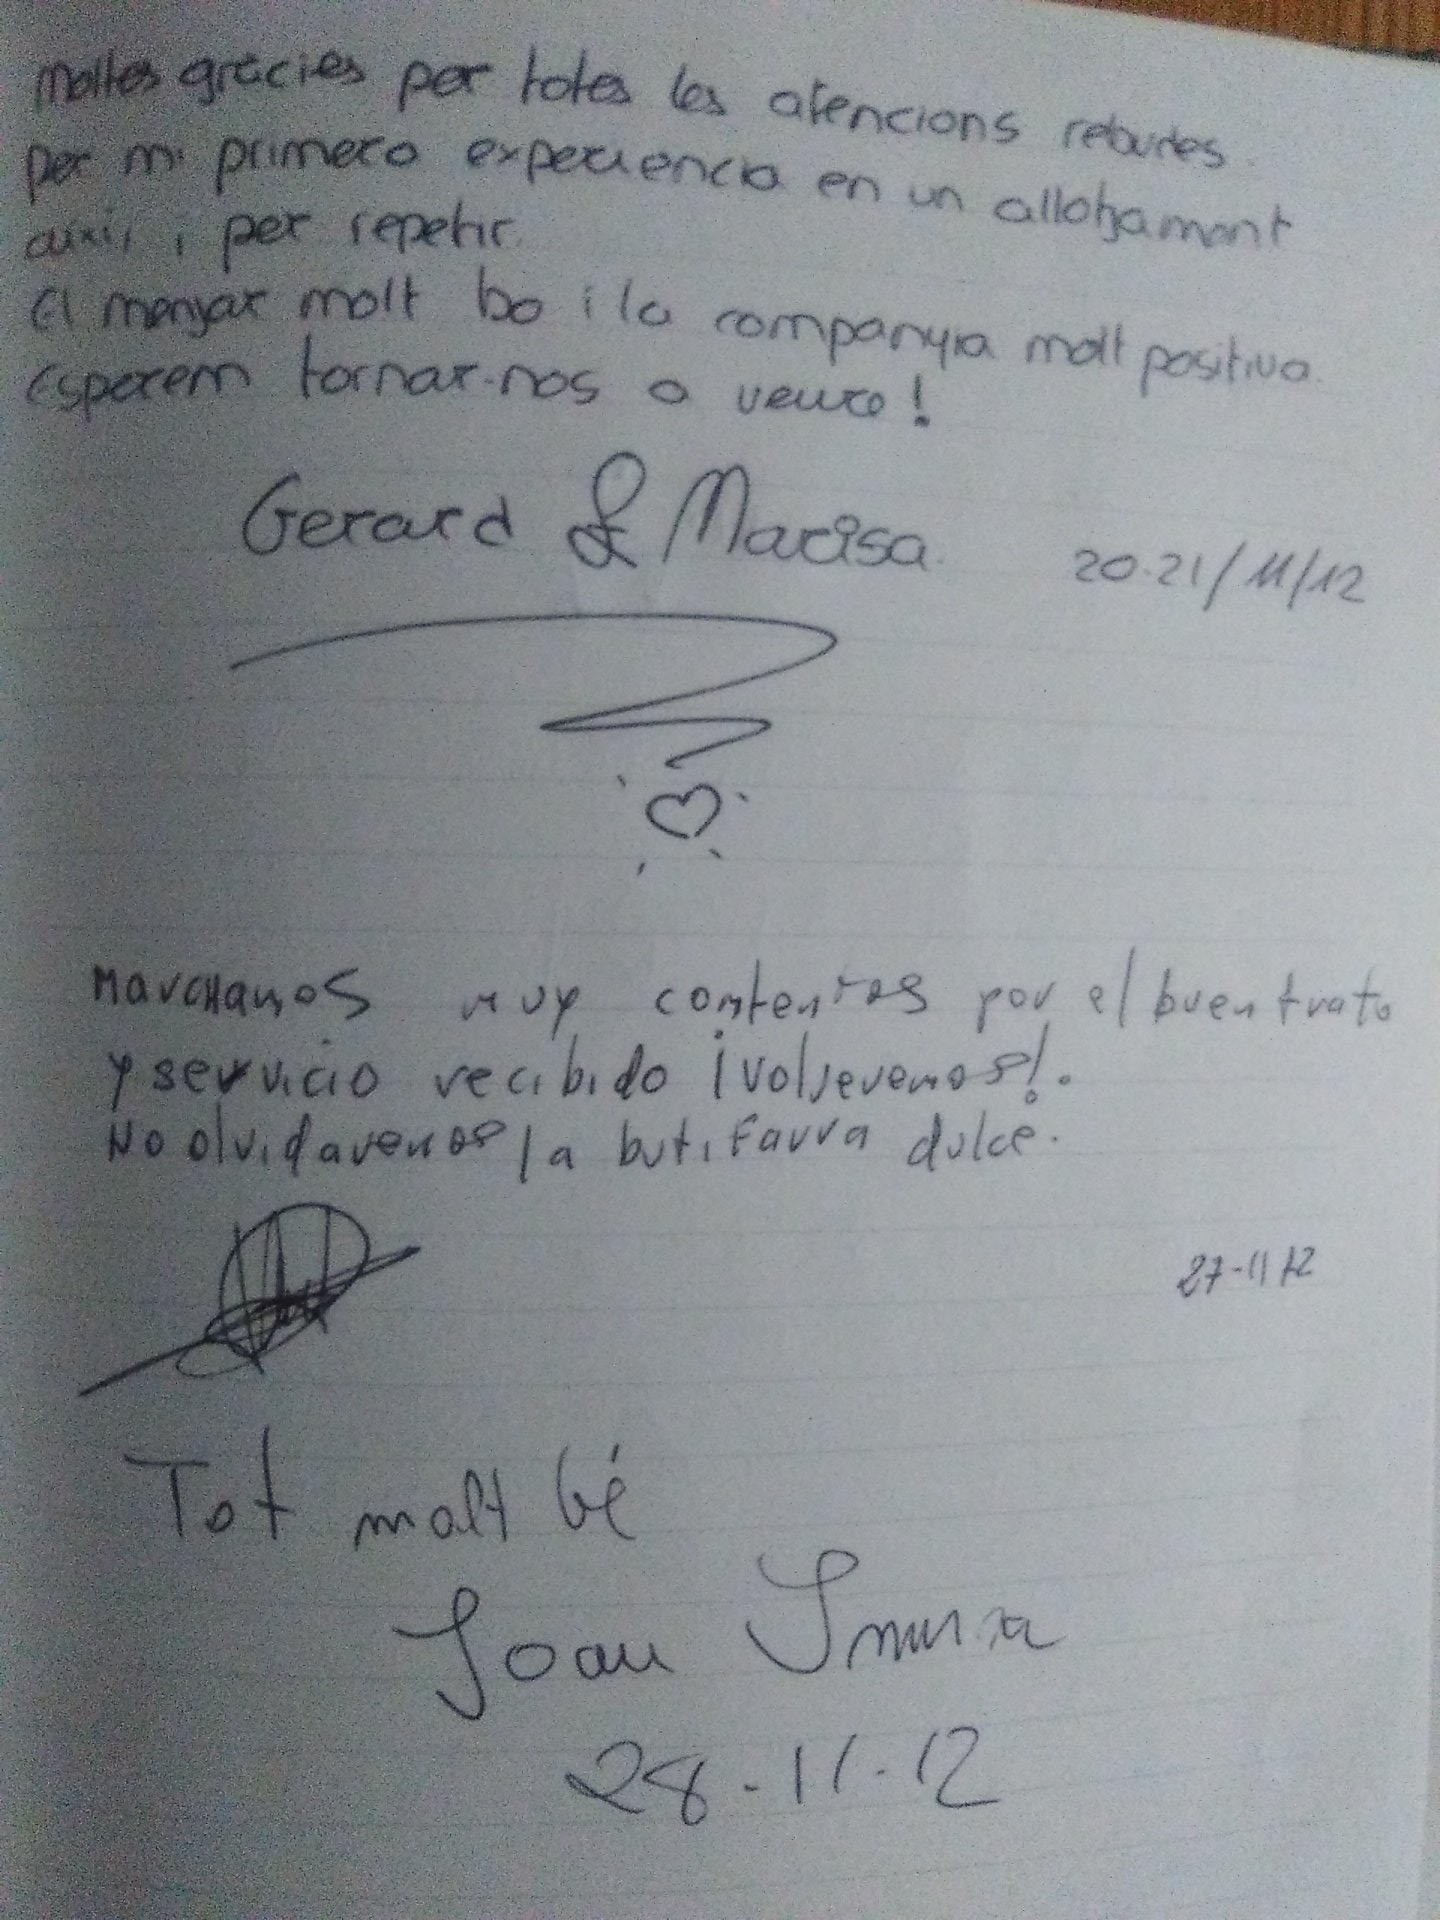 Moltes gràcies per totes les atencions rebudes
per mi primera experiencia en un allotjament
així, i per repetir.
El menjar molt bo i la companyia molt positiva.
Esperem tornar-nos a veure!
Gerard & Marisa.
20-21/11/12
Marchamos muy contentos por el buen trato
y servicio recibido ¡volveremos!.
No olvidaremos la butifarra dulce.
27-11 12
Tot molt bé
Joan
28-11-12